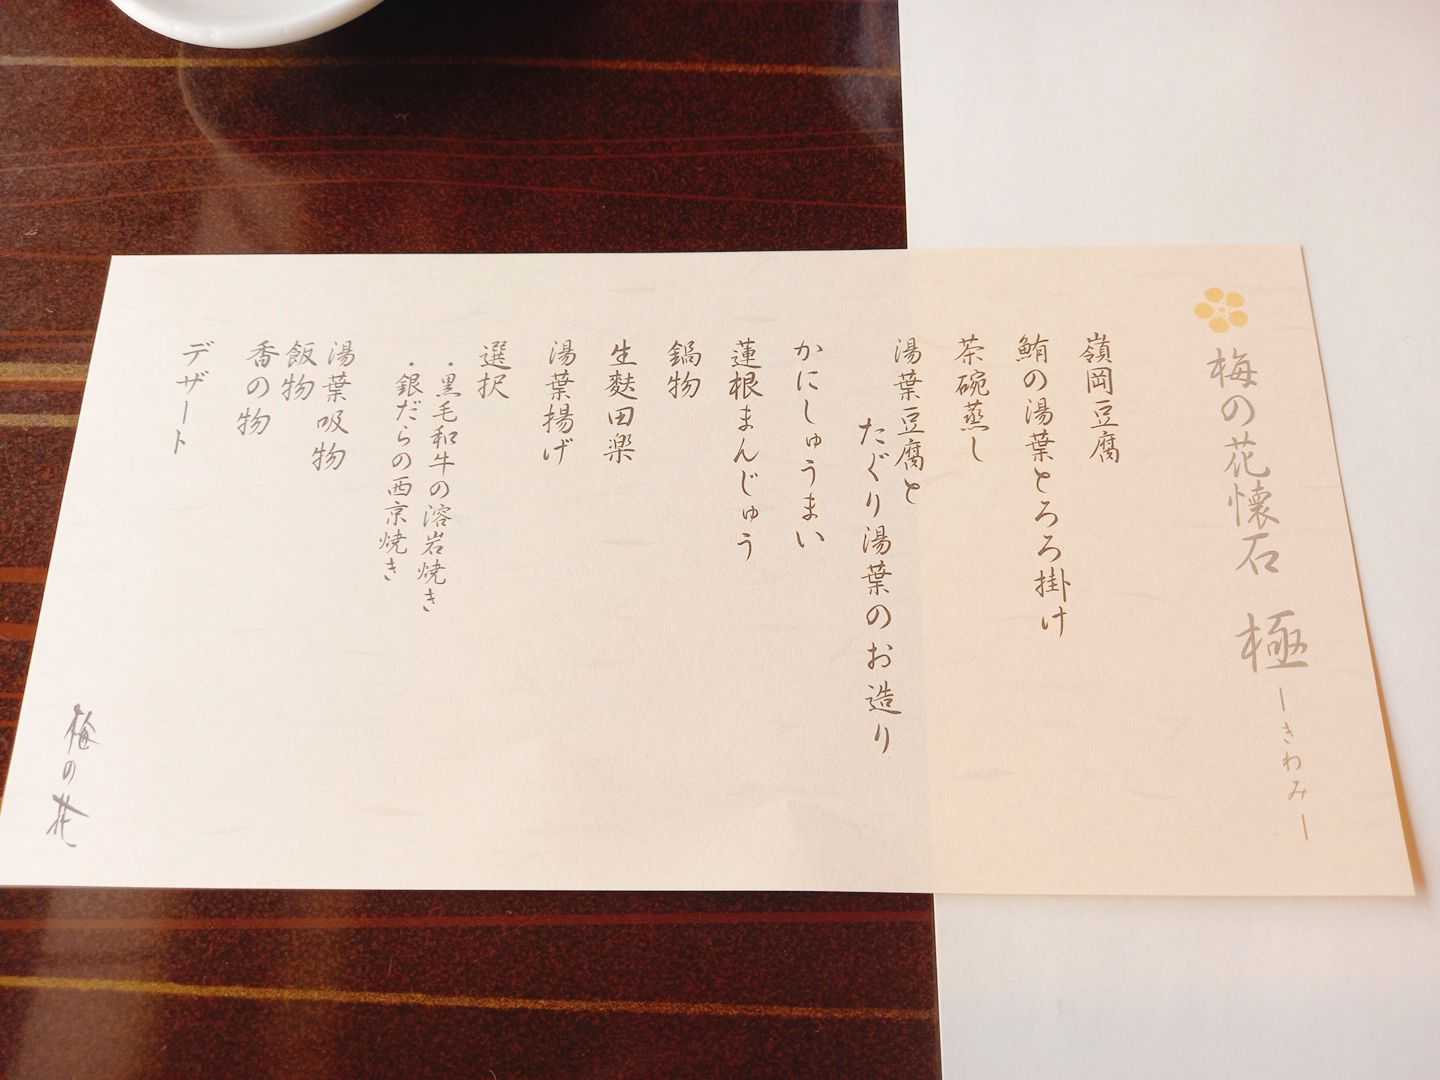 梅の花懐石 極 ーきわみー
嶺岡豆腐
鮪の湯葉とろろ掛け
茶碗蒸し
湯葉豆腐と
たぐり湯葉のお造り
かにしゅうまい
蓮根まんじゅう
鍋物
生麩田楽
湯葉揚げ
選択
・黒毛和牛の溶岩焼き
・銀だらの西京焼き
湯葉吸物
飯物
香の物
デザート
梅の花